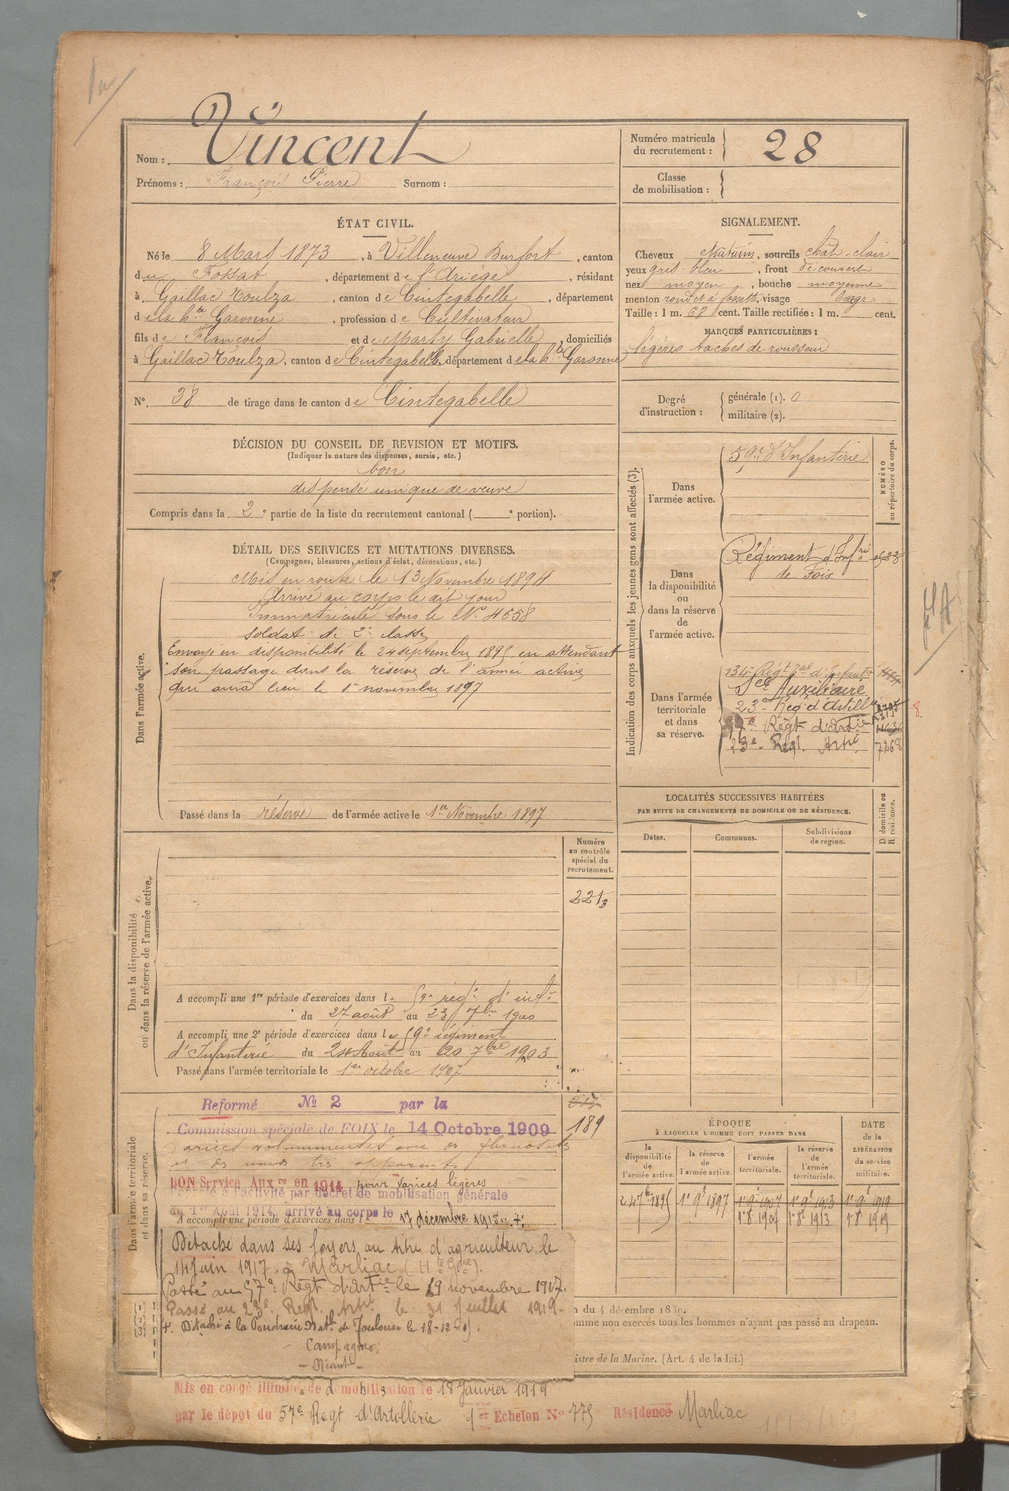 Nom : Vincent
Prénoms : François Pierre Surnom :
Numéro matricule du recrutement : 28
Classe de mobilisation :
ÉTAT CIVIL.
Né le 8 Mars 1873, à Villeneuve Durfort, canton
du Fossat, département de l'Ariège, résidant
à Gaillac Toulza, canton de Cintegabelle, département
de la hte Garonne, profession de Cultivateur
fils de François et de Marty Gabrielle, domiciliés
à Gaillac Toulza, canton de Cintegabelle, département de la hte Garonne
N° 38 de tirage dans le canton de Cintegabelle
DÉCISION DU CONSEIL DE REVISION ET MOTIFS.
(Indiquer la nature des dispenses, sursis, etc.)
bon
dispensé unique de veuve
Compris dans la 2e partie de la liste du recrutement cantonal ( e portion).
DÉTAIL DES SERVICES ET MUTATIONS DIVERSES.
(Campagnes, blessures, actions d'éclat, décorations, etc.)
Dans l'armée active.
Mis en route le 13 Novembre 1894
Arrivé au corps le dit jour
Immatriculé sous le N° 4658
Soldat de 2e classe
Envoyé en disponibilité le 24 septembre 1895 en attendant
son passage dans la réserve de l'armée active
qui aura lieu le 1er novembre 1897
Passé dans la réserve de l'armée active le 1er Novembre 1897
Dans la disponibilité ou dans la réserve de l'armée active.
Numéro au contrôle spécial du recrutement.
2213
A accompli une 1re période d'exercices dans le 59e régt d'infie
du 27 août au 23 7bre 1900
A accompli une 2e période d'exercices dans le 59e régiment
d'Infanterie du 24 Août au 20 7bre 1903
Passé dans l'armée territoriale le 1er octobre 1907
Dans l'armée territoriale et dans sa réserve.
Reformé N° 2 par la
Commission spéciale de FOIX le 14 Octobre 1909
189
BON Service Auxre en 1914 pour varices légères
à l'activité par décret de mobilisation générale
du 1er Août 1914, arrivé au corps le 17 décembre 1915
A accompli une période d'exercices dans l
Détaché dans ses foyers au titre d'agriculteur le
14 juin 1917 à Marliac (Hte Gne).
Passé au 57e Régt d'Artie le 19 novembre 1917.
Passé au 23e Regt. Artie le 31 Juillet 1919.
Détaché à la Poudrerie Natle de Toulouse le 18-12-15.
Campagnes,
- Néant -
Mis en congé illimité de démobilisation le 18 Janvier 1919
par le dépôt du 57e Regt d'Artillerie 1er Echelon N° 775 Résidence Marliac
SIGNALEMENT.
Cheveux châtains, sourcils chât. clair
yeux gris bleu, front découvert
nez moyen, bouche moyenne
menton rond et à fossette, visage large
Taille : 1 m. 68 cent. Taille rectifiée : 1 m. cent.
MARQUES PARTICULIÈRES :
légères taches de rousseur
Degré d'instruction : générale (1). 0
militaire (2).
Indication des corps auxquels les jeunes gens sont affectés (3).
NUMÉRO au répertoire du corps.
Dans l'armée active.
59e d'Infanterie
Dans la disponibilité ou dans la réserve de l'armée active.
Régiment d'Infie
de Foix
Dans l'armée territoriale et dans sa réserve.
134e Régt Tal d'Infantie
Sce Auxiliaire
23e Reg d'Artill
57e Régt d'Artie
23e Regt. Artie 7268
8.
LOCALITÉS SUCCESSIVES HABITÉES
PAR SUITE DE CHANGEMENTS DE DOMICILE OU DE RÉSIDENCE.
Dates. Communes. Subdivisions de région. D domicile ou R résidence.
ÉPOQUE
À LAQUELLE L'HOMME DOIT PASSER DANS
la disponibilité de l'armée active. la réserve de l'armée active. l'armée territoriale. la réserve de l'armée territoriale.
DATE de la LIBÉRATION du service militaire.
24 7bre 1895 1er 9bre 1897 1er 9bre 1907 1er 9bre 1913 1er 9bre 1919
1er 8bre 1907 1er 8bre 1913 1er 8bre 1919
du 4 décembre 1889.
comme non exercés tous les hommes n'ayant pas passé au drapeau.
istre de la Marine. (Art. 4 de la loi.)